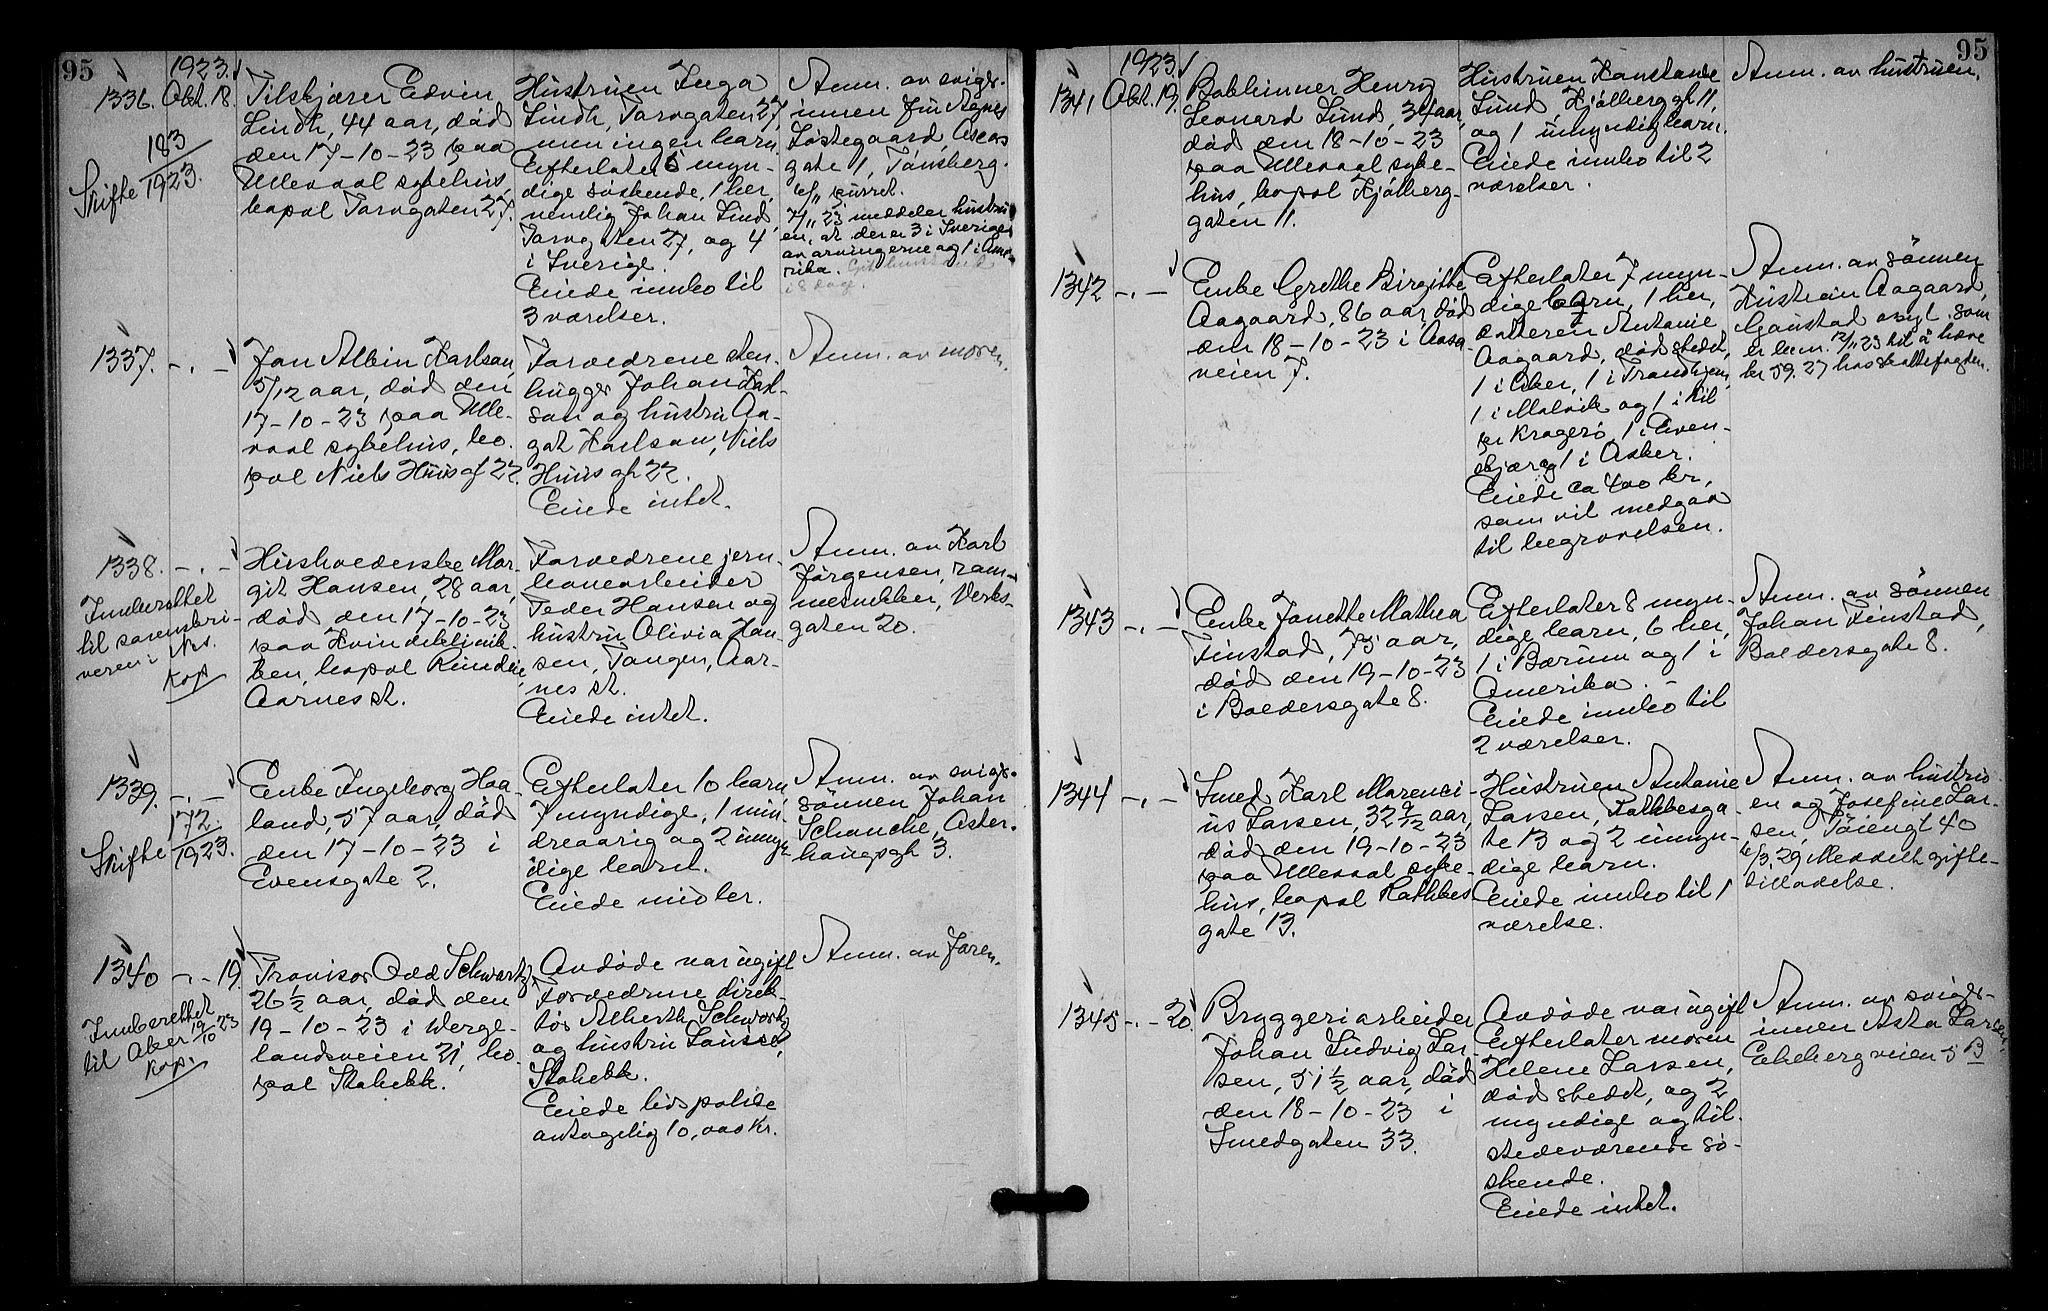 95
1923.
1336. Okt. 18.
Skifte 183/1923.
Tilskjærer Edvin
Lindh, 44 aar, død
den 17-10-23 paa
Ullevaal sykehus,
bopæl Torvgaten 27.
Hustruen Inga
Lindh, Torvgaten 27,
men ingen barn.
Efterlater 5 myn-
dige søskende, 1 her,
nemlig Johan Lind
Torvgaten 27, og 4
i Sverige.
Eiede innbo til
3 værelser.
Anm. av sviger-
innen Agnes
gate 1, Tønsberg.
6/11 purret.
7/11 23 meddeler hustru
en, at der er 3 i Sverige
av arvingerne og 1 i Ame-
rika.
i 8 dag.
1337. -.-
Jan Albin Karlson,
5/12 aar, død den
17-10-23 paa Ulle-
vaal sykehus, bo-
pæl Niels Huus gt 22.
Forældrene sten-
hugger Johan Karl-
son og hustru Aa-
got Karlson, Niels
Huus gt 22.
Eiede intet.
Anm. av moren.
1338. -.-
Innberettet
til sorenskri-
veren i Nes.
Kop
Husholderske Mar-
git Hansen, 28 aar,
død den 17-10-23
paa Kvindeklinik-
ken, bopæl Runden,
Aarnes st.
Forældrene jern-
banearbeider
Peder Hansen og
hustru Olivia Han-
sen, Tangen, Aar-
nes st.
Eiede intet.
Anm. av Karl
Jørgensen, ram-
mesnekker, Verks-
gaten 20.
1339. -.-
Skifte 172/1923.
Enke Ingeborg Haa-
land, 57 aar, død
den 17-10-23 i
Evensgate 2.
Efterlater 10 barn,
7 myndige, 1 min-
dreaarig og 2 umyn-
dige barn.
Eiede midler.
Anm. av sviger-
sønnen Johan
Schanche, Aker-
haugsgt 3.
1340 -.- 19.
Innberettet
til Aker 19/10 23
Kop.
Provisor Odd Schwartz,
26 1/2 aar, død den
19-10-23 i Werge-
landsveien 21, bo-
pæl Stabekk.
Avdøde var ugift
Forældrene direk-
tør Alberth Schwartz
og hustru Louise,
Stabekk.
Eiede livspolise
antagelig 10,000 kr.
Anm. av faren.
95
1923.
1341 Okt. 19.
Bokbinner Henry
Leonard Lund, 34 aar,
død den 18-10-23
paa Ullevaal syke-
hus, bopæl Kjølberg-
gaten 11.
Hustruen Konstance
Lund, Kjølberggt 11,
og 1 umyndig barn.
Eiede innbo til 2
værelser.
Anm. av hustruen.
1342 -.-
Enke Grethe Birgitte
Aagaard, 86 aar, død
den 18-10-23 i Aasa-
veien 7.
Efterlater 7 myn-
dige barn, 1 her,
datteren Antonie
Aagaard, dødstedet,
1 i Aker, 1 i Trondhjem,
1 i Malvik og 1 i Kil
pr Kragerø, 1 i Even-
skjær og 1 i Asker.
Eiede ca 400 kr,
som vil medgaa
til begravelsen.
Anm. av sønnen
Aagaard,
Gaustad asyl, som
er bem. 12/11 23 til å hæve
kr 59.27 hos skattefogden.
1343 -.-
Enke Janette Mathea
Finstad, 75 aar,
død den 19-10-23
i Boldersgate 8.
Efterlater 8 myn-
dige barn, 6 her,
1 i Bærum og 1 i
Amerika.-
Eiede innbo til
2 værelser.
Anm. av sønnen
Johan Finstad,
Boldersgate 8.
1344 -.-
Smed Karl Marenci-
us Larsen, 32 9/12 aar,
død den 19-10-23
paa Ullevaal syke-
hus, bopæl Rathkes
gate 13.
Hustruen Antonie
Larsen, Rathkesga-
te 13 og 2 umyn-
dige barn.
Eiede innbo til 1
værelse.
Anm. av hustru-
en og Josefine Lar-
sen, Tøiengt 40
6/3.29 Meddelt gifte-
tilladelse.
1345 -.- 20.
Bryggeriarbeider
Johan Ludvig Lar-
sen, 51 1/2 aar, død
den 18-10-23 i
Smedgaten 33.
Avdøde var ugift
Efterlater moren
Helene Larsen,
dødstedet, og 2
myndige og til-
stedeværende sø-
skende.
Eiede intet.
Anm. av sviger-
innen Asta Larsen,
Ekebergveien 5 B